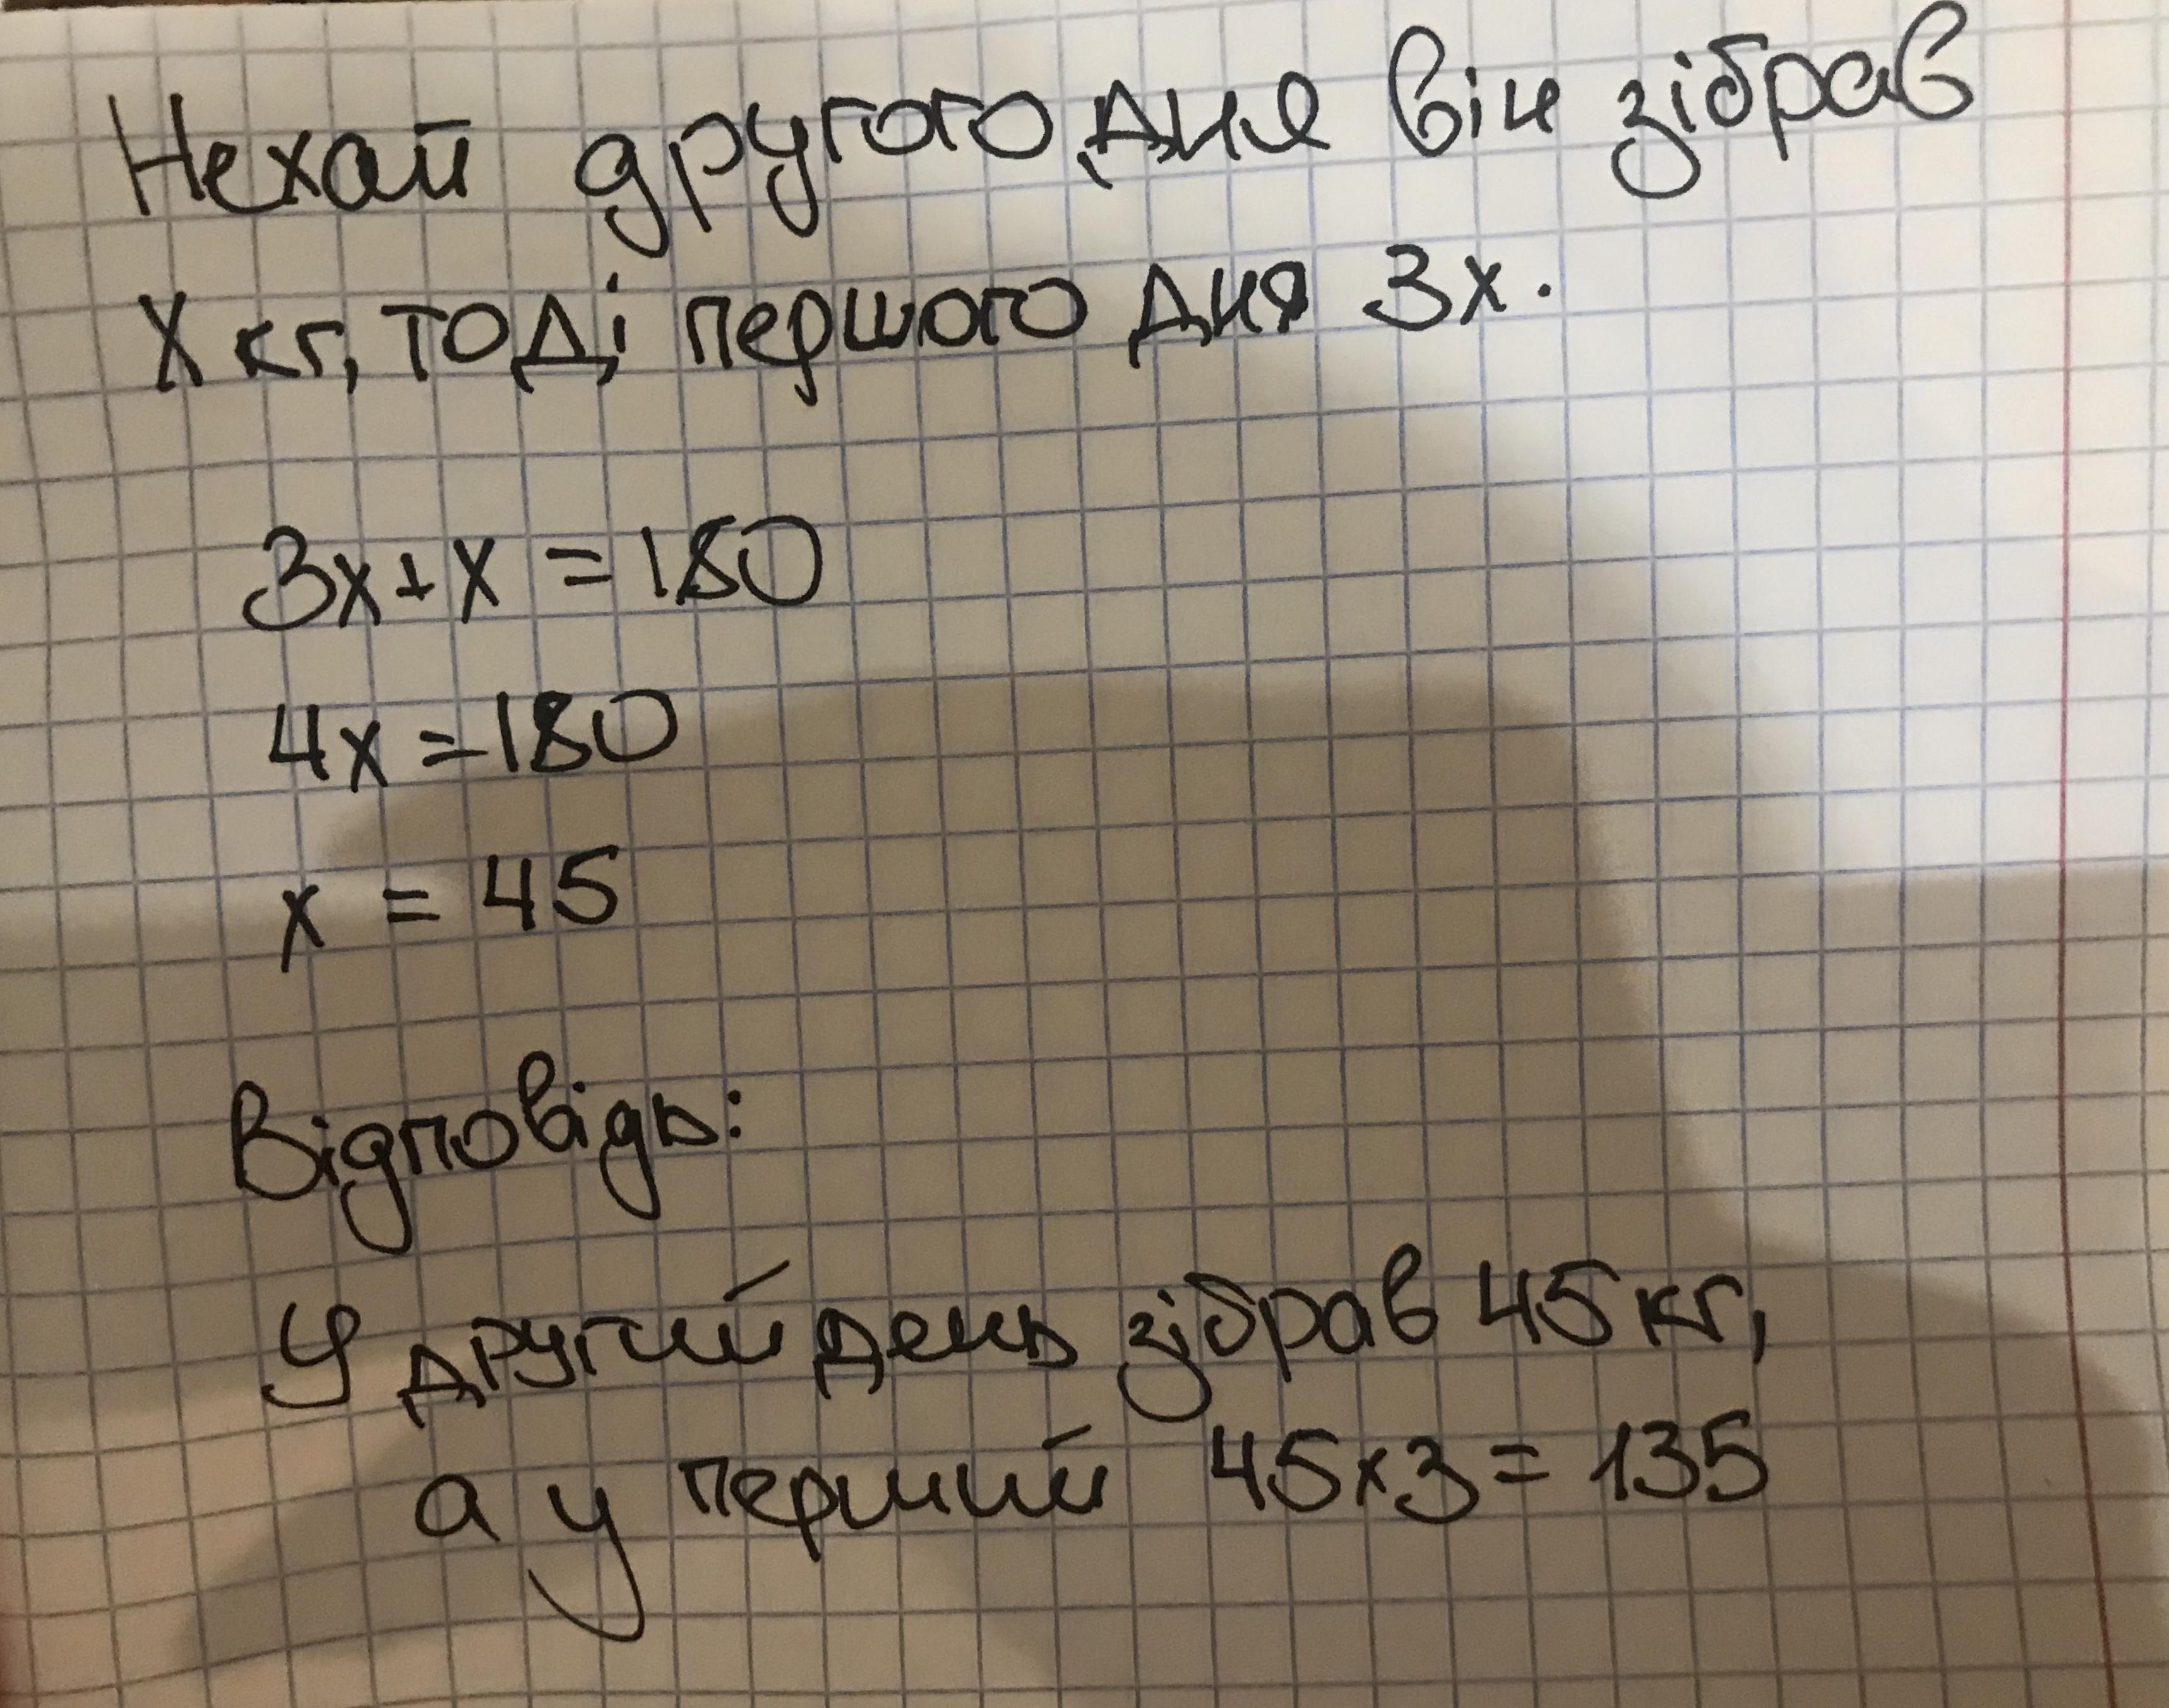 Нехай другого дня він зібрав
х кг, тоді першого дня 3х.
3х+х = 180
4х = 180
х = 45
Відповідь:
У другий день зібрав 45 кг,
а у перший 45х3 = 135